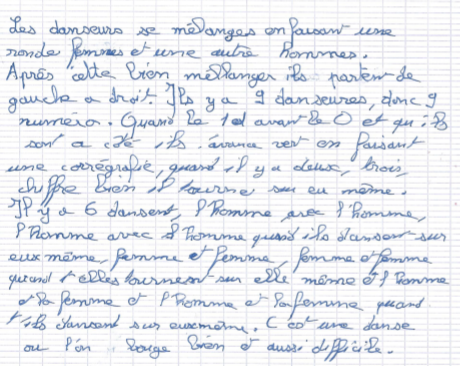 Les danseurs se mélanges en faisant une
ronde femmes et une autre hommes.
Après cette bien mélanger ils partent de
gauche a droit. Ils y a 9 danseures, donc 9
numéro. Quand le 1 avant le 0 et qu'ils
son a côté, ils avance vert en faisant
une corrégrafie, quand il y a deux, trois,
chiffre bien il tourne sur eu même.
Il y a 6 dansent, l'homme avec l'homme,
l'homme avec l'homme quand ils dansent sur
eux même, femme et femme, femme et femme
quand elles tournent sur elle même et l'homme
et la femme et l'homme et la femme quand
ils dansent sur eux même. C est une danse
ou l'on bouge bien et aussi difficile.